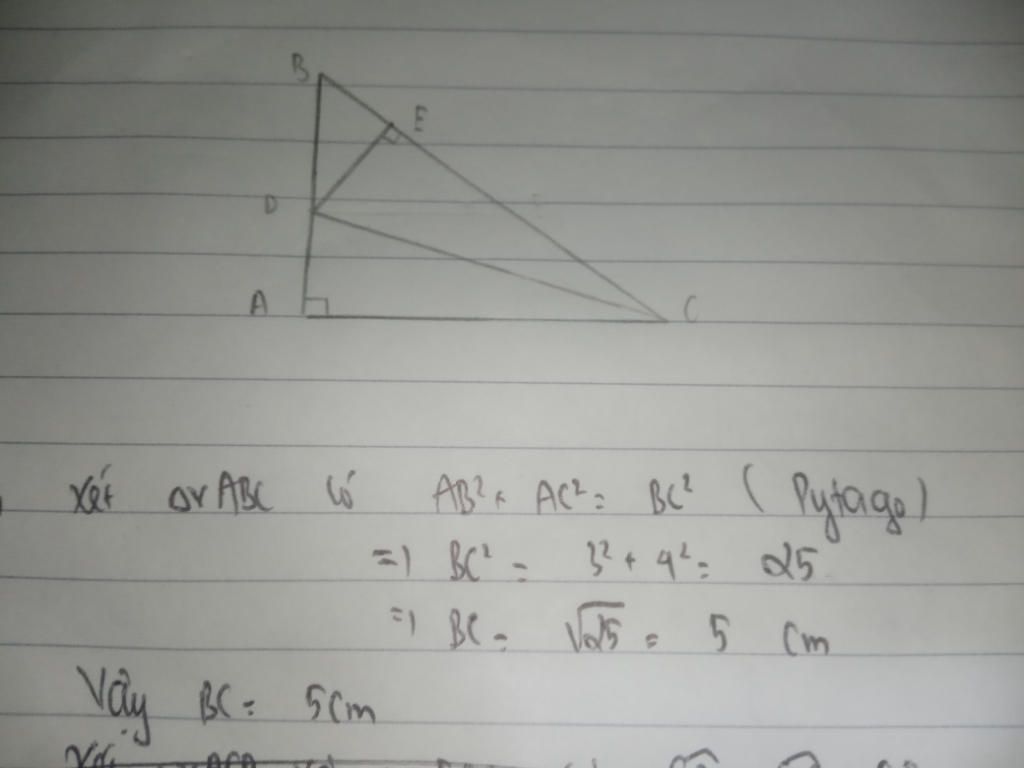 B
E
D
A
C
Xét ΔvABC có AB² + AC² = BC² (Pytago)
=> BC² = 3² + 4² = 25
=> BC = √25 = 5 cm
Vậy BC = 5cm